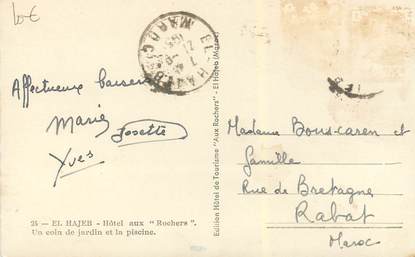 10€
EL-HAJEB
MAROC
Affectueux baisers
Marie
Josette
Yves
24 — EL HAJEB - Hôtel aux "Rochers".
Un coin de jardin et la piscine.
Edition Hôtel de Tourisme "Aux Rochers" - El Hajeb (Maroc)
Madame Bous-caren et
famille
Rue de Bretagne
Rabat
Maroc